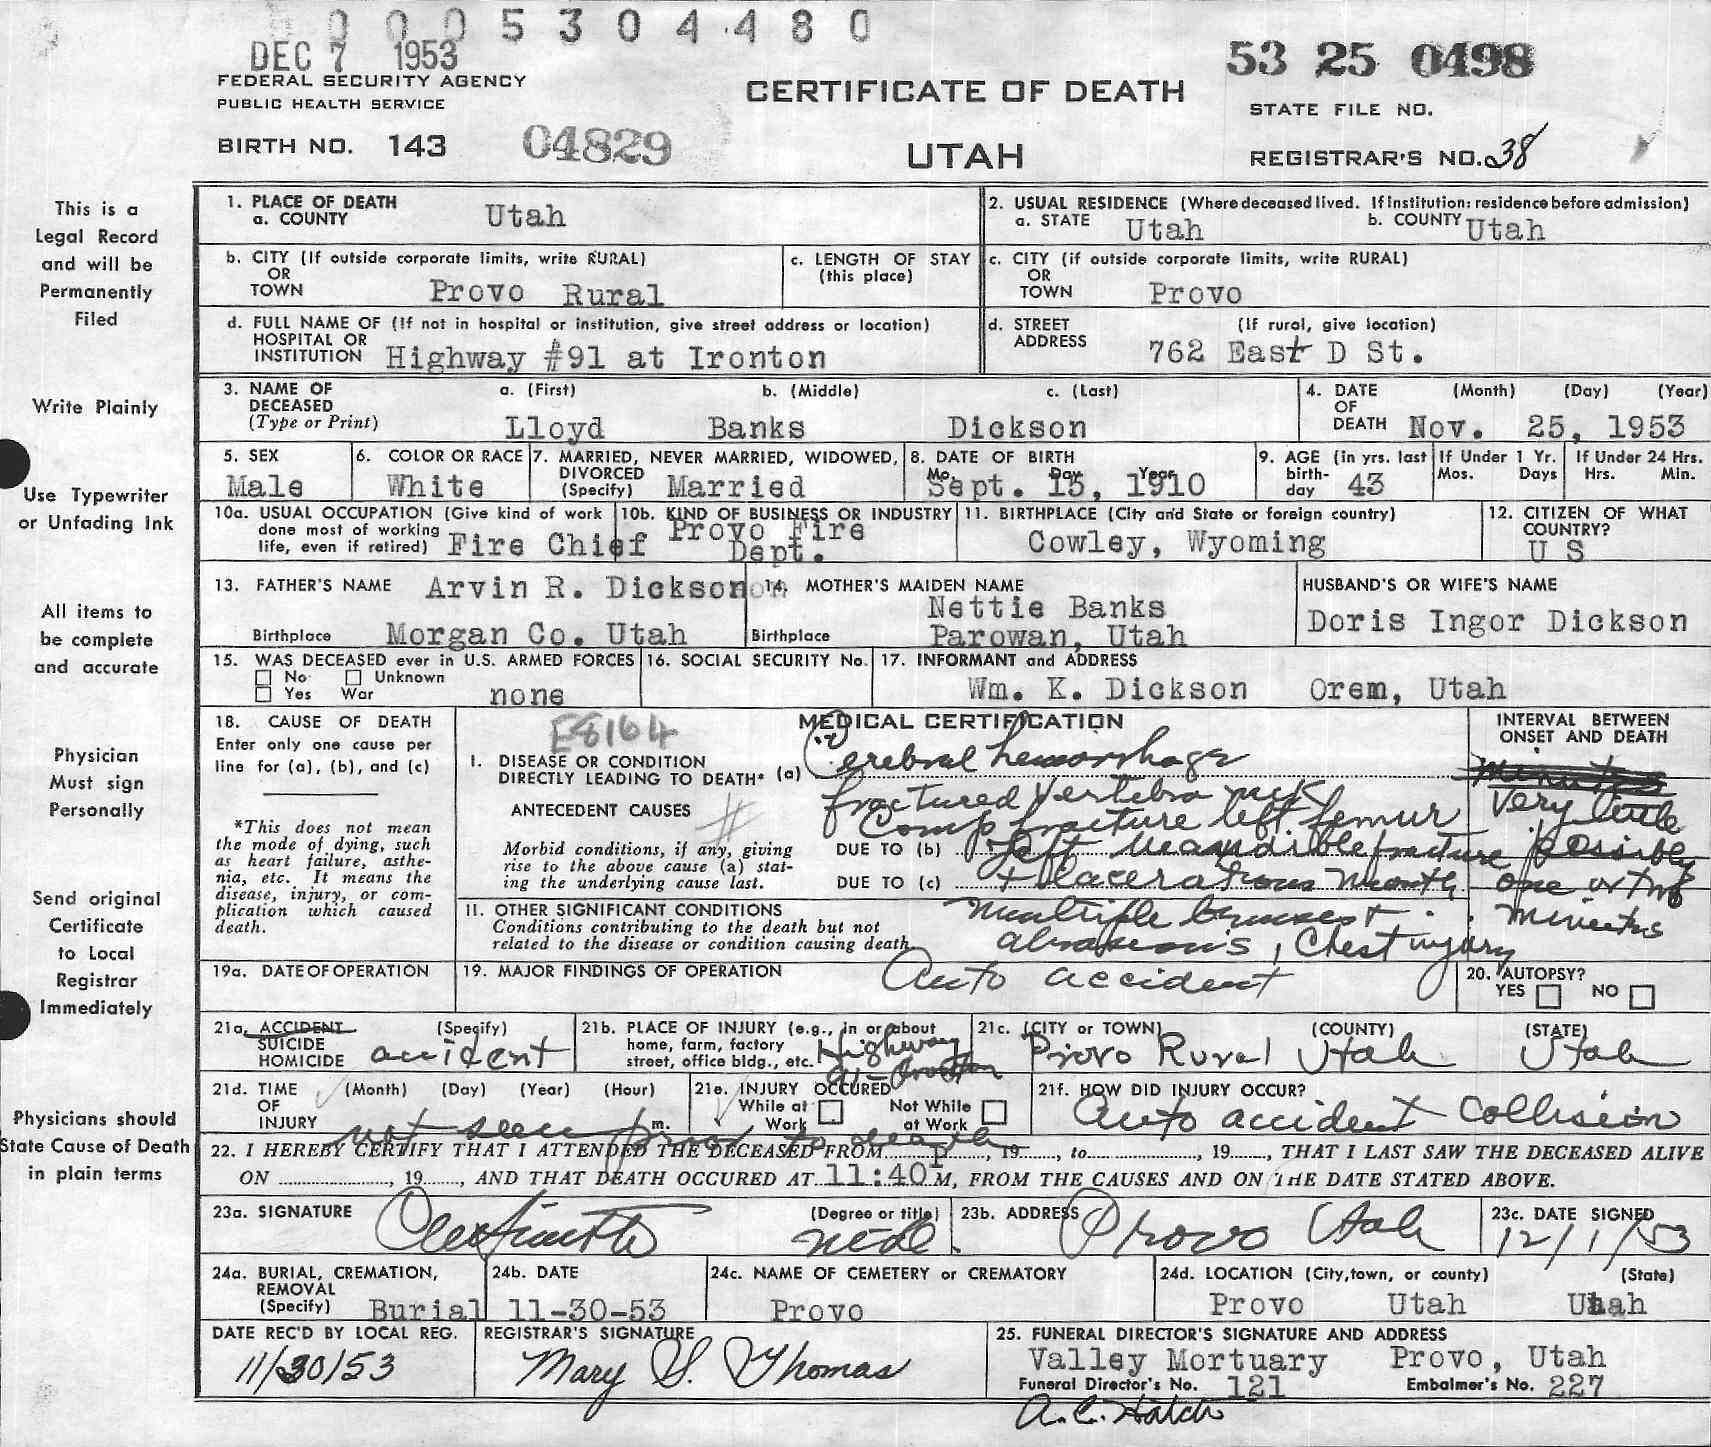 0005304480
DEC 7 1953
53 25 0498
FEDERAL SECURITY AGENCY
PUBLIC HEALTH SERVICE
CERTIFICATE OF DEATH
STATE FILE NO.
BIRTH NO. 143 04829
UTAH
REGISTRAR'S NO. 38
This is a
Legal Record
and will be
Permanently
Filed
Write Plainly
Use Typewriter
or Unfading Ink
All items to
be complete
and accurate
Physician
Must sign
Personally
Send original
Certificate
to Local
Registrar
Immediately
Physicians should
State Cause of Death
in plain terms
1. PLACE OF DEATH
a. COUNTY Utah
2. USUAL RESIDENCE (Where deceased lived. If institution: residence before admission)
a. STATE Utah b. COUNTY Utah
b. CITY (If outside corporate limits, write RURAL)
OR
TOWN Provo Rural
c. LENGTH OF STAY
(this place)
c. CITY (if outside corporate limits, write RURAL)
OR
TOWN Provo
d. FULL NAME OF (If not in hospital or institution, give street address or location)
HOSPITAL OR
INSTITUTION Highway #91 at Ironton
d. STREET (If rural, give location)
ADDRESS 762 East D St.
3. NAME OF a. (First) b. (Middle) c. (Last)
DECEASED
(Type or Print) Lloyd Banks Dickson
4. DATE (Month) (Day) (Year)
OF
DEATH Nov. 25, 1953
5. SEX
Male
6. COLOR OR RACE
White
7. MARRIED, NEVER MARRIED, WIDOWED,
DIVORCED
(Specify) Married
8. DATE OF BIRTH
Mo. Day Year
Sept. 15, 1910
9. AGE (in yrs. last
birth-
day 43
If Under 1 Yr.
Mos. Days
If Under 24 Hrs.
Hrs. Min.
10a. USUAL OCCUPATION (Give kind of work
done most of working
life, even if retired) Fire Chief
10b. KIND OF BUSINESS OR INDUSTRY
Provo Fire
Dept.
11. BIRTHPLACE (City and State or foreign country)
Cowley, Wyoming
12. CITIZEN OF WHAT
COUNTRY?
U S
13. FATHER'S NAME Arvin R. Dickson
Birthplace Morgan Co. Utah
14. MOTHER'S MAIDEN NAME
Nettie Banks
Birthplace Parowan, Utah
HUSBAND'S OR WIFE'S NAME
Doris Ingor Dickson
15. WAS DECEASED ever in U.S. ARMED FORCES
No Unknown
Yes War none
16. SOCIAL SECURITY No.
17. INFORMANT and ADDRESS
Wm. K. Dickson Orem, Utah
18. CAUSE OF DEATH
Enter only one cause per
line for (a), (b), and (c)
*This does not mean
the mode of dying, such
as heart failure, asthe-
nia, etc. It means the
disease, injury, or com-
plication which caused
death.
E8164
MEDICAL CERTIFICATION
I. DISEASE OR CONDITION
DIRECTLY LEADING TO DEATH* (a) Cerebral hemorrhage
fractured vertebra neck
ANTECEDENT CAUSES #
Comp fracture left femur
Morbid conditions, if any, giving
rise to the above cause (a) stat-
ing the underlying cause last.
DUE TO (b) Left Meandible fracture
DUE TO (c) + lacerations mouth
II. OTHER SIGNIFICANT CONDITIONS
Conditions contributing to the death but not
related to the disease or condition causing death
Multiple bruises +
abrasions, Chest injury
INTERVAL BETWEEN
ONSET AND DEATH
minutes
Very little
possibly
one or two
minutes
19a. DATE OF OPERATION
19. MAJOR FINDINGS OF OPERATION Auto accident
20. AUTOPSY?
YES NO
21a. ACCIDENT (Specify)
SUICIDE
HOMICIDE accident
21b. PLACE OF INJURY (e.g., in or about
home, farm, factory
street, office bldg., etc. Highway
91
21c. (CITY or TOWN) (COUNTY) (STATE)
Provo Rural Utah Utah
21d. TIME (Month) (Day) (Year) (Hour)
OF
INJURY m.
21e. INJURY OCCURED
While at Work
Not While at Work
21f. HOW DID INJURY OCCUR?
Auto accident Collision
not seen prior to death
22. I HEREBY CERTIFY THAT I ATTENDED THE DECEASED FROM , 19 , to , 19 , THAT I LAST SAW THE DECEASED ALIVE
ON , 19 , AND THAT DEATH OCCURED AT 11:40 P M, FROM THE CAUSES AND ON THE DATE STATED ABOVE.
23a. SIGNATURE (Degree or title)
23b. ADDRESS Provo Utah
23c. DATE SIGNED
12/1/53
24a. BURIAL, CREMATION,
REMOVAL
(Specify) Burial
24b. DATE
11-30-53
24c. NAME OF CEMETERY or CREMATORY
Provo
24d. LOCATION (City, town, or county) (State)
Provo Utah Utah
DATE REC'D BY LOCAL REG.
11/30/53
REGISTRAR'S SIGNATURE
Mary S. Thomas
25. FUNERAL DIRECTOR'S SIGNATURE AND ADDRESS
Valley Mortuary Provo, Utah
Funeral Director's No. 121 Embalmer's No. 227
A. C. Hatch